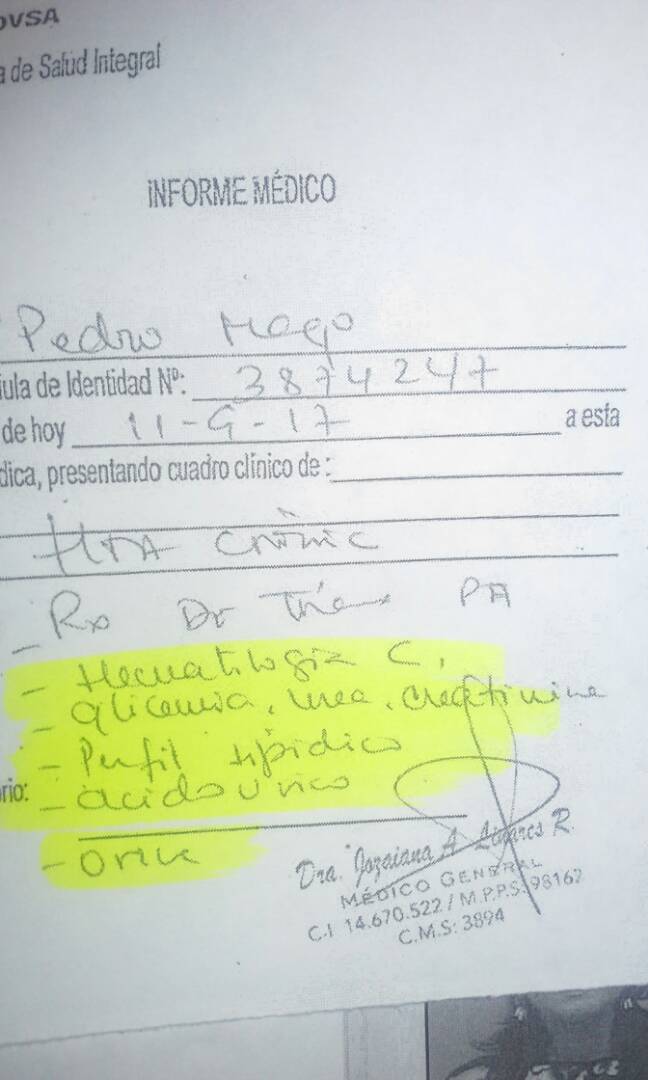 OVSA
a de Salud Integral
INFORME MÉDICO
Pedro Mago
ula de Identidad Nº: 3874247
de hoy 11-9-17 a esta
dica, presentando cuadro clínico de :
HTA crónic
- Rx De Tórax PA
- Hematologia C.
- glicemia, urea, creatinina
- Perfil lipidico
rio: - acido urico
- orina
Dra. Jozaiana A. Linares R.
MÉDICO GENERAL
C.I 14.670.522 / M.P.P.S: 98162
C.M.S: 3894